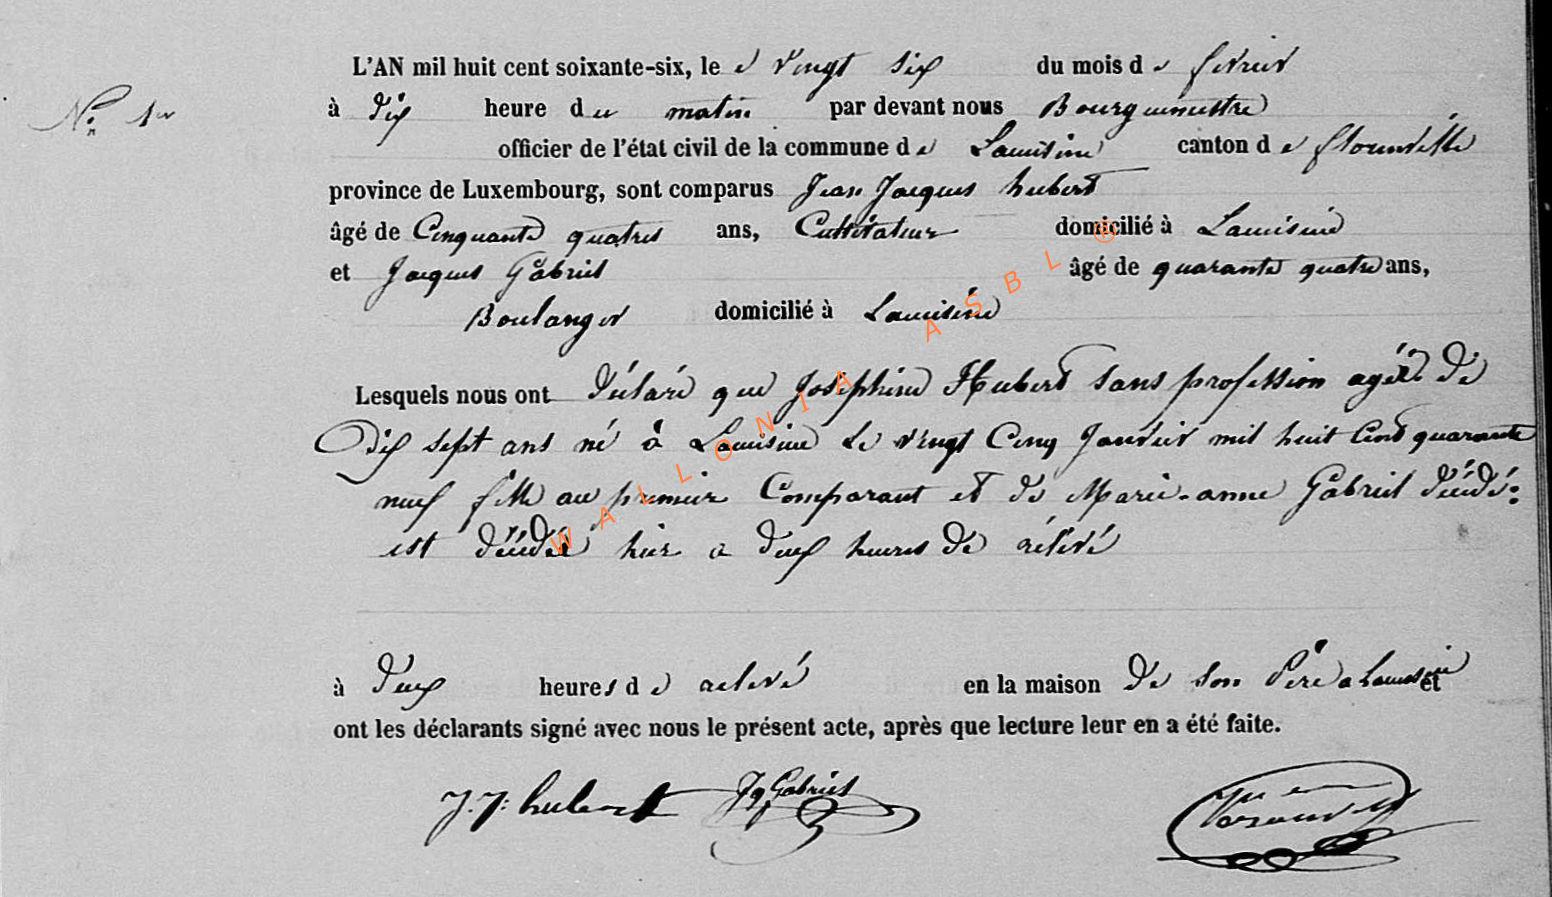 L'AN mil huit cent soixante-six, le e vingt six du mois de fevrier
N° 1er
à dix heure du matin par devant nous Bourguemestre
officier de l'état civil de la commune de Lacuisine canton de florenville
province de Luxembourg, sont comparus Jean Jacques hubert
âgé de Cinquante quatres ans, Cultivateur domicilié à Lacuisine
et Jacques Gabriel âgé de quarante quatre ans,
Boulanger domicilié à Lacuisine
Lesquels nous ont déclaré que Joséphine Hubert sans profession agée de
Dix sept ans né à Lacuisine le vingt Cinq Janvier mil huit Cent quarante
neuf fille au premier Comparant et de Marie-anne Gabriel décédé:
est décédée hier a deux heures de relévé
à deux heures de relevé en la maison de son Père a Lacuisine et
ont les déclarants signé avec nous le présent acte, après que lecture leur en a été faite.
J.J. hubert Jq Gabriel
WALLONIA ASBL ®